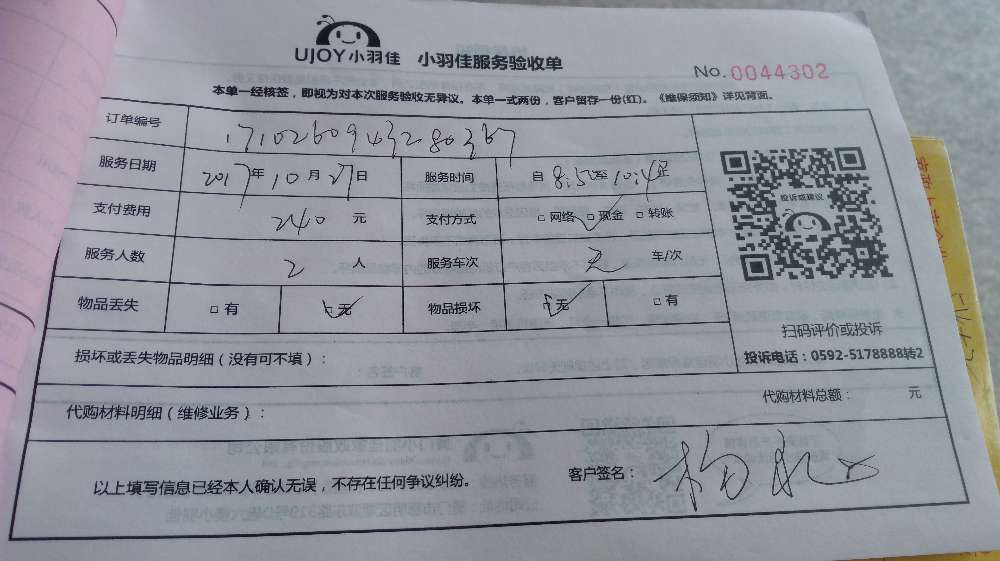 UJOY小羽佳 小羽佳服务验收单
No.0044302
本单一经核签，即视为对本次服务验收无异议。本单一式两份，客户留存一份(红)。《维保须知》详见背面。
订单编号 1710260943280367
服务日期 2017年10月27日 服务时间 自8:55至10:45止
支付费用 240元 支付方式 □网络 □现金 □转账
投诉或建议
服务人数 2人 服务车次 无 车/次
物品丢失 □有 □无 物品损坏 □无 □有
扫码评价或投诉
损坏或丢失物品明细（没有可不填）：
投诉电话：0592-5178888转2
代购材料明细（维修业务）： 代购材料总额： 元
以上填写信息已经本人确认无误，不存在任何争议纠纷。 客户签名：